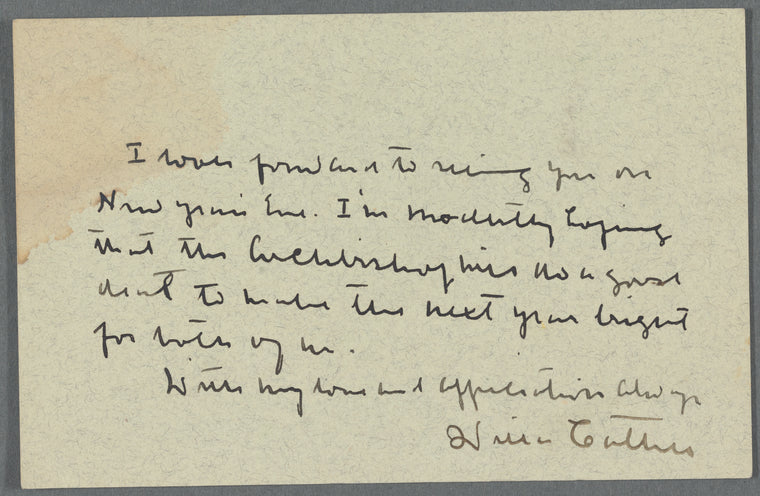 I look forward to seeing you on
New Year's Eve. I'm modestly hoping
that the Archbishop will do a good
deal to make the next year bright
for both of us.
With my love and appreciation always
Willa Cather